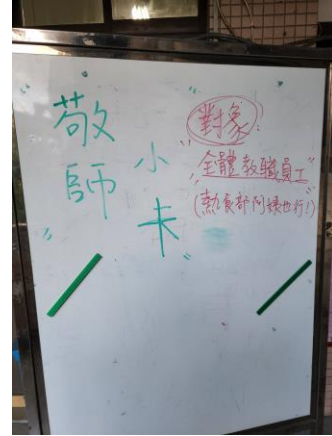 敬師小卡
對象:
"全體教職員工"
(熱食部阿姨也行!)